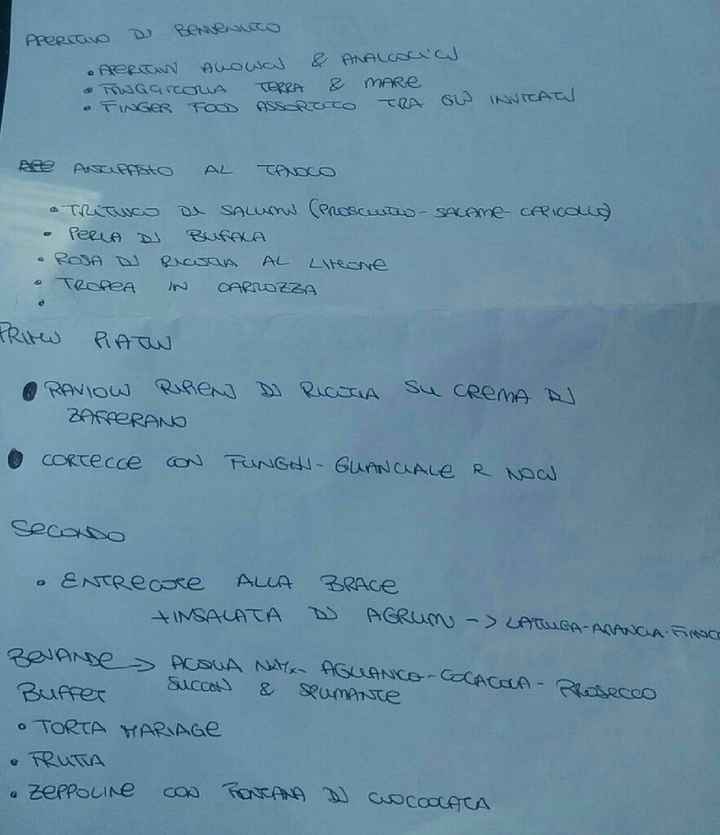 APERITIVO DI BENVENUTO
• APERITIVI ALCOLICI & ANALCOLICI
• FRITTICELLA TERRA & MARE
• FINGER FOOD ASSORTITO TRA GLI INVITATI
ANTIPASTO AL TAVOLO
• TRITTICO DI SALUMI (PROSCIUTTO - SALAME - CAPICOLLO)
• PERLA DI BUFALA
• ROSA DI RICOTTA AL LIMONE
• TROPEA IN CARROZZA
•
PRIMI PIATTI
• RAVIOLI RIPIENI DI RICOTTA SU CREMA DI
ZAFFERANO
• CORTECCE CON FUNGHI - GUANCIALE E NOCI
SECONDO
• ENTRECOTE ALLA BRACE
+ INSALATA DI AGRUMI -> LATTUGA - ARANCIA - FINOC
BEVANDE -> ACQUA NAT - AGLIANICO - COCACOLA - PROSECCO
SUCCHI & SPUMANTE
BUFFET
• TORTA MARIAGE
• FRUTTA
• ZEPPOLINE CON FONTANA DI CIOCCOLATA